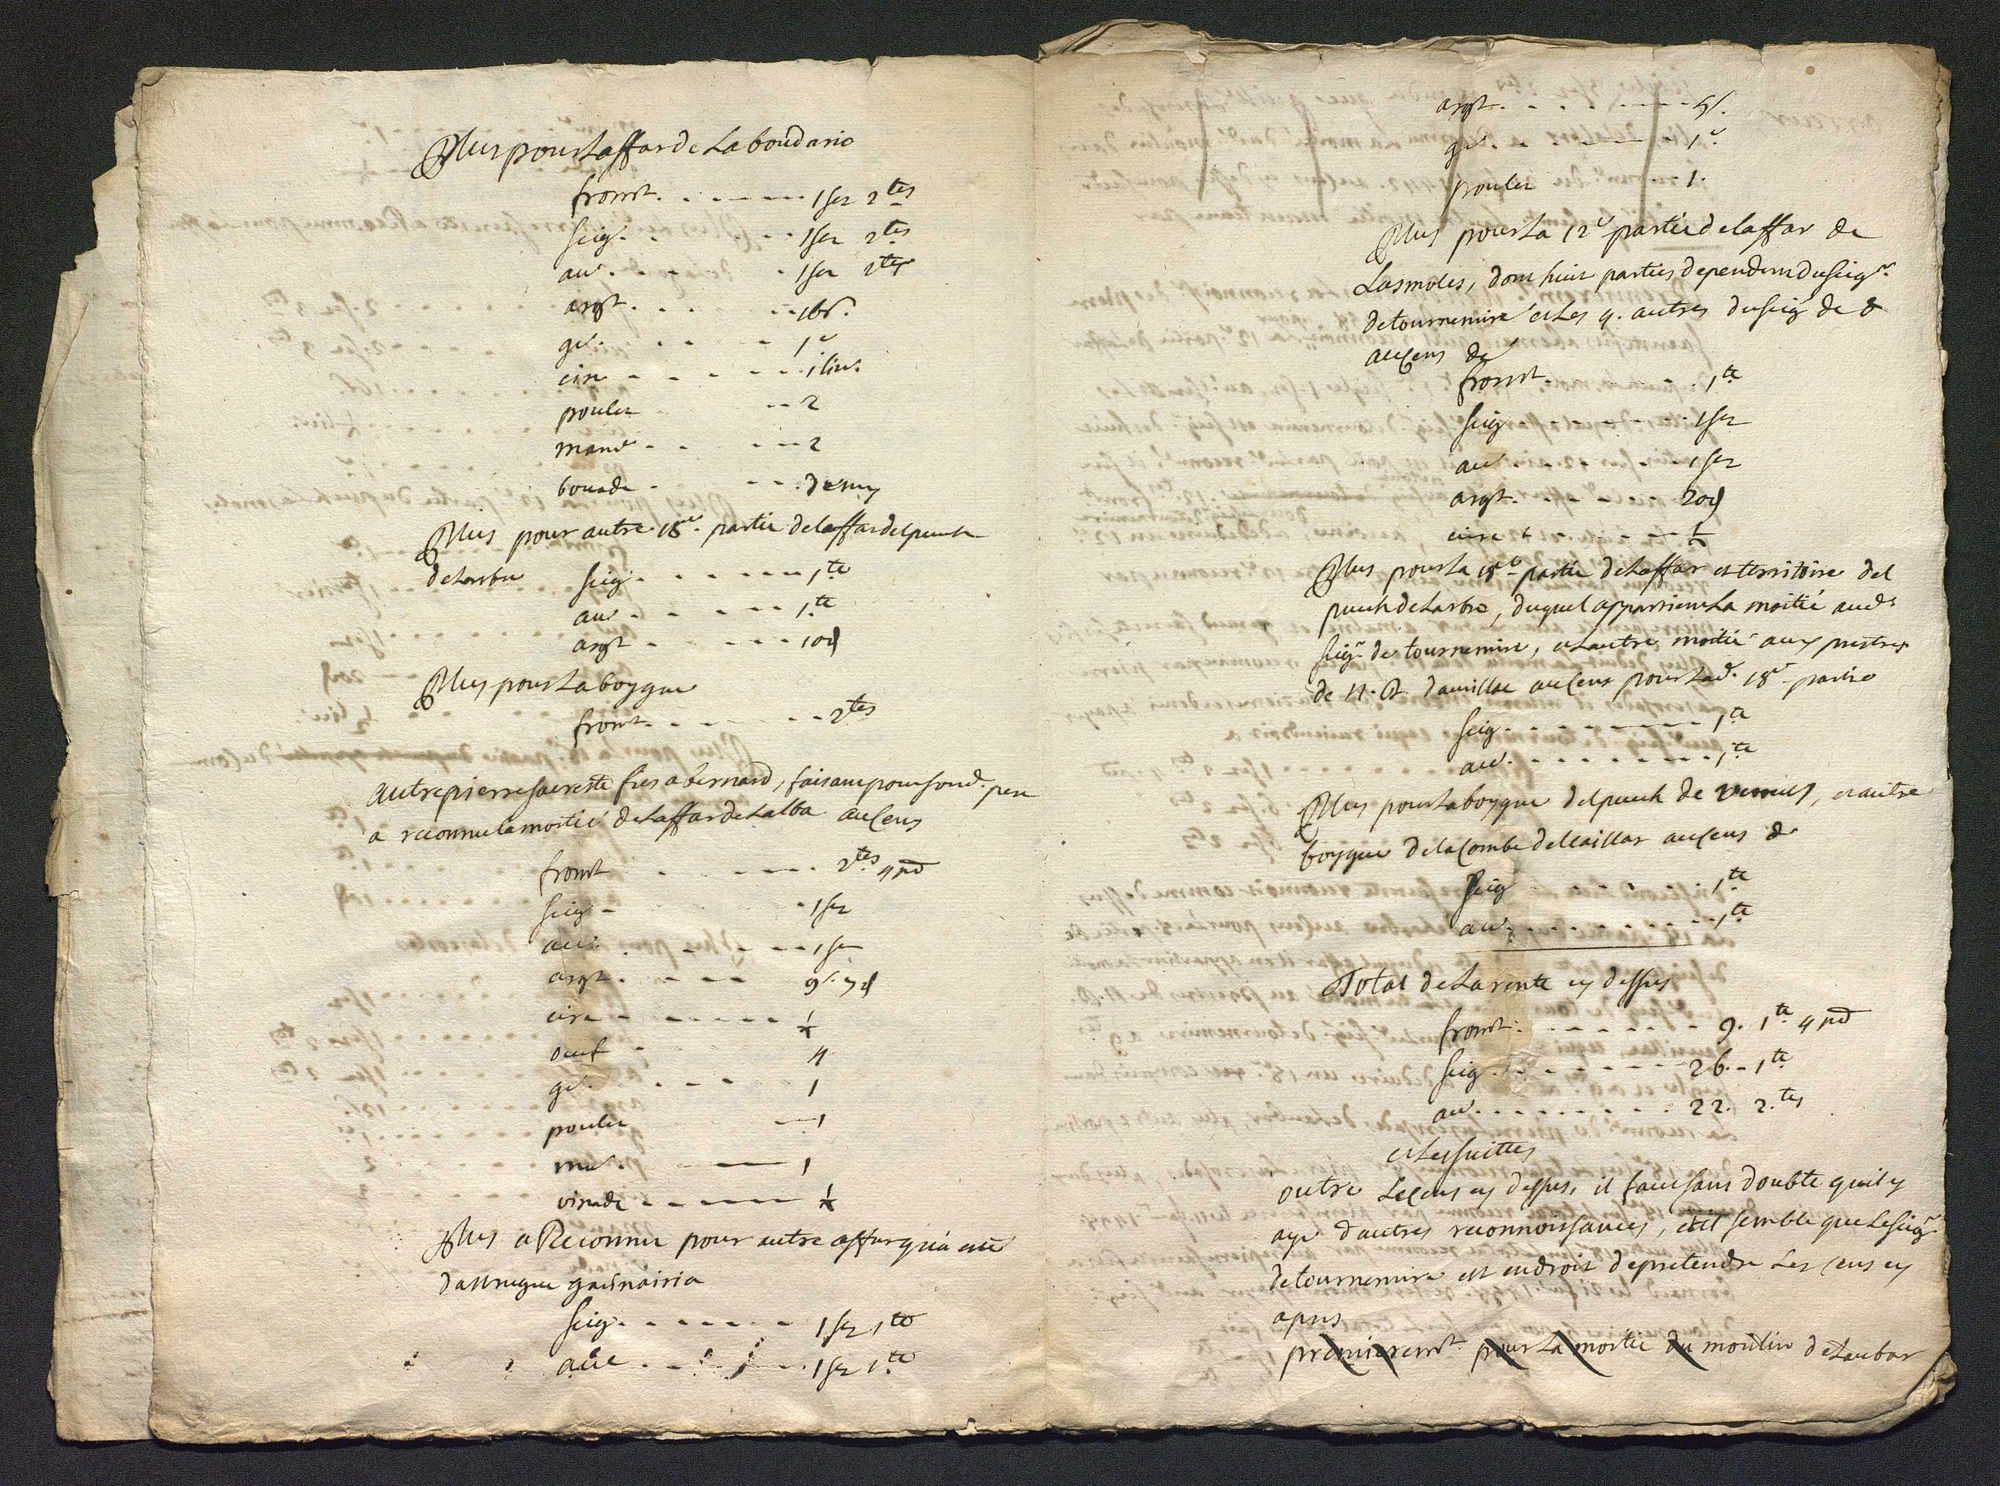 Plus pour Laffar de La boudario
fromt. - - - - - 1 ser 2tes
seig. - - - - - 1 ser 2tes
au. - - - - - 1 ser 2tes
argt. - - - - - 16s.
ge. - - - - - 1e
cire - - - - - 1 liv.
poules - - 2
manu. - - - - 2
bouade - - - - demy
Plus pour autre 18e. partie de laffar del puech
de Larbre seig. - - - - - 1te
au. - - - - - 1te
argt - - - - - 10d
Plus pour La boygue
fromt. - - - - - 2tes
autre pierre saereste fils a bernard, faisant pour fond. pere
a reconnu la moitié de Laffar de Lalba au Cens
fromt - - - - - 2tes 4pd
seig - - 1 ser
au. - - - - 1 ser
argt. - - - - 9s. 7d
cire - - - - - ½
oeuf - 4
ge. - - - - 1
poules - 1
ma. - 1
vinade - - - - - ½
Plus a Reconnu pour autre affar qui a esté
dastrugue gasnairia
seig. - - - - - 1 ser 1te
aue - - - - - 1 ser 1te
argt. - - - - - 5s.
ge. - - - - - 1e
poules - - - 1.
Plus pour La 12e partie de laffar de
Lasmoles, dont huit parties dependent du seigr.
de tournemire et Les 4. autres du seig de &
au Cens de
fromt. - - - - - 1te
seig - - - - - 1 ser
au - - - - - 1 ser
argt. - - - - - 20d
cire - - - - - ½
Plus pour La 18e partie de Laffar et territoire del
puech de Larbre, duquel appartient La moitié aud.
seigr. de tournemire, et Lautre moitié aux prestres
de N. D. daurillac au Cens pour Lad. 18e partie
seig - - - - - 1te
au. - - - - - 1te
Plus pour La boygue del puech de , et autre
boygue de la Combe del caillar au Cens de
seig - - - - - 1te
au. - - - - - 1te
Total de La rente cy dessus
fromt. - - - - - 9. 1te 4pd
seig. - - - - - 26. - 1te
au. - - - - - 22. 2.tes
et Les suittes
outre Le Cens cy dessus, il faut sans doubte quil y
aye dautres reconnoissances, et il semble que Le seigr.
de tournemire est en droit de pretendre Les Cens cy
apres
premierement. pour La moitié du moulin de Laubar